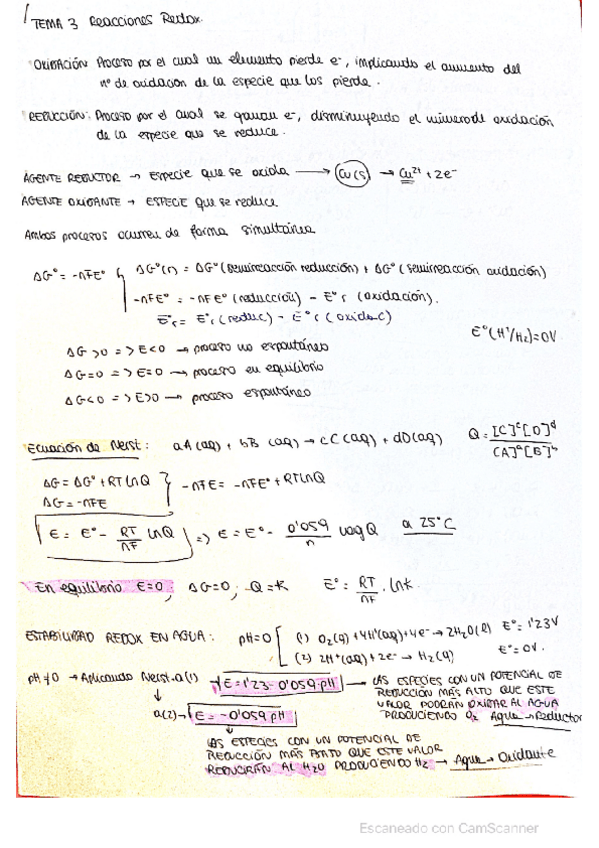 TEMA 3 Reacciones Redox.
OXIDACIÓN: Proceso por el cual un elemento pierde e-, implicando el aumento del
nº de oxidación de la especie que los pierde.
REDUCCIÓN: Proceso por el cual se ganan e-, disminuyendo el número de oxidación
de la especie que se reduce.
AGENTE REDUCTOR → Especie que se oxida → Cu(s) → Cu²⁺ + 2e-
AGENTE OXIDANTE → ESPECIE que se reduce
Ambos procesos ocurren de forma simultánea
ΔG° = -nFE° ΔG°(r) = ΔG° (semirreacción reducción) + ΔG° (semirreacción oxidación)
-nFE° = -nFE° (reducción) - E°r (oxidación).
E°r = E°r (reduc) - E°r (oxidac)
E°(H⁺/H₂)=0V
ΔG>0 => E<0 → proceso no espontáneo
ΔG=0 => E=0 → proceso en equilibrio
ΔG<0 => E>0 → proceso espontáneo
Ecuación de Nerst: aA(aq) + bB (aq) → cC(aq) + dD(aq) Q = [C]^c[D]^d / [A]^a[B]^b
ΔG = ΔG° + RTLnQ
ΔG = -nFE
-nFE = -nFE° + RTLnQ
E = E° - RT/nF LnQ => E = E° - 0'059/n Log Q a 25°C
En equilibrio E=0; ΔG=0; Q=K E° = RT/nF . Lnk.
ESTABILIDAD REDOX EN AGUA: pH=0 (1) O₂(g)+4H⁺(aq)+4e- → 2H₂O(l) E°=1'23V
(2) 2H⁺(aq)+2e- → H₂(g) E°=0V.
pH≠0 → Aplicando Nerst a(1) E=1'23-0'059·pH → LAS ESPECIES CON UN POTENCIAL DE
REDUCCIÓN MÁS ALTO QUE ESTE
VALOR PODRÁN OXIDAR AL AGUA
PRODUCIENDO O₂ Agua → Reductor
a(2) → E = -0'059 pH
LAS ESPECIES CON UN POTENCIAL DE
REDUCCIÓN MÁS BAJO QUE ESTE VALOR
REDUCIRÁN AL H₂O PRODUCIENDO H₂ → Agua → Oxidante
Escaneado con CamScanner